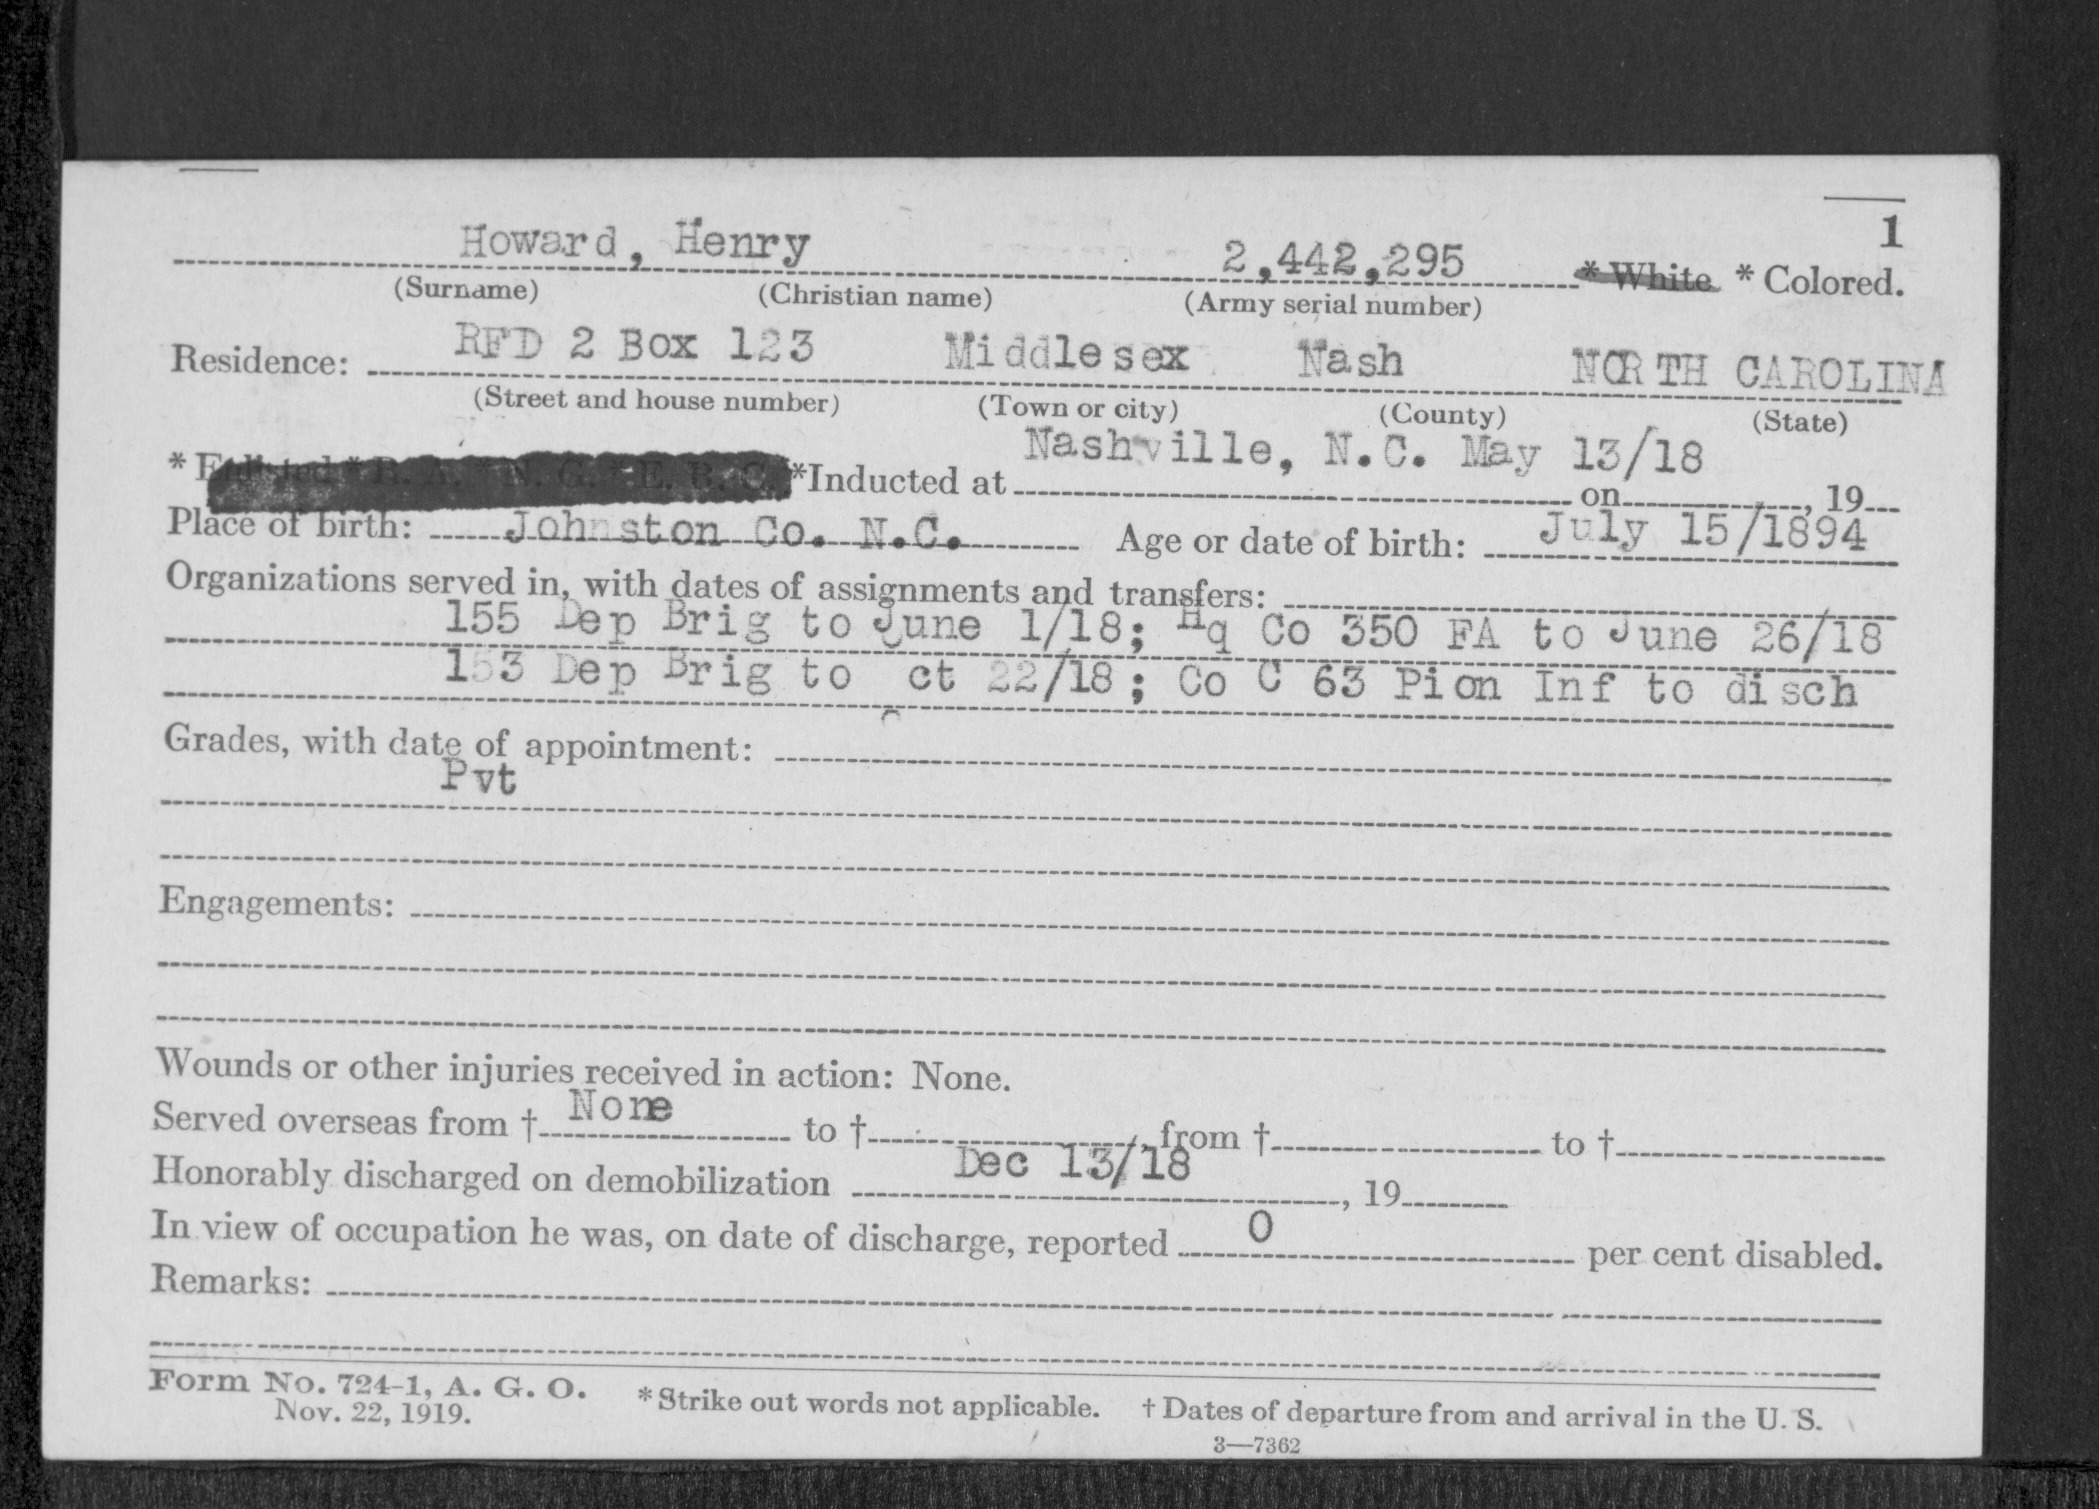 1
Howard, Henry 2,442,295 * White * Colored.
(Surname) (Christian name) (Army serial number)
Residence: RFD 2 Box 123 Middlesex Nash NORTH CAROLINA
(Street and house number) (Town or city) (County) (State)
* Enlisted * R. A. * N. G. * E. R. C. *Inducted at Nashville, N.C. May 13/18 on , 19
Place of birth: Johnston Co. N.C. Age or date of birth: July 15/1894
Organizations served in, with dates of assignments and transfers:
155 Dep Brig to June 1/18; Hq Co 350 FA to June 26/18
153 Dep Brig to ct 22/18; Co C 63 Pion Inf to disch
Grades, with date of appointment:
Pvt
Engagements:
Wounds or other injuries received in action: None.
Served overseas from † None to † , from † to †
Honorably discharged on demobilization Dec 13/18 , 19
In view of occupation he was, on date of discharge, reported 0 per cent disabled.
Remarks:
Form No. 724-1, A. G. O. * Strike out words not applicable. † Dates of departure from and arrival in the U. S.
Nov. 22, 1919.
3—7362